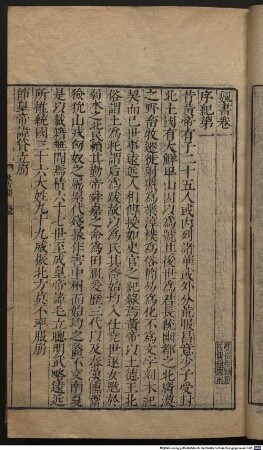 魏書卷
序紀第一
昔黃帝有子二十五人或內列諸華或外分荒服昌意少子受封
北土國有大鮮卑山因以為號其後世為君長統幽都之北廣漠
之野畜牧遷徙射獵為業淳樸為俗簡易為化不為文字刻木紀
契而已世事遠近人相傳授如史官之紀錄焉黃帝以土德王北
俗謂土為托謂后為跋故以為氏其裔始均入仕堯世逐女魃於
弱水之北民賴其勤帝舜嘉之命為田祖爰歷三代以及秦漢獯鬻
獫狁山戎匈奴之屬累代殘暴作害中州而始均之裔不交南夏
是以載籍無聞焉積六十七世至成皇帝諱毛立聰明武略遠近
所推統國三十六大姓九十九威振北方莫不率服崩
節皇帝諱貸立崩